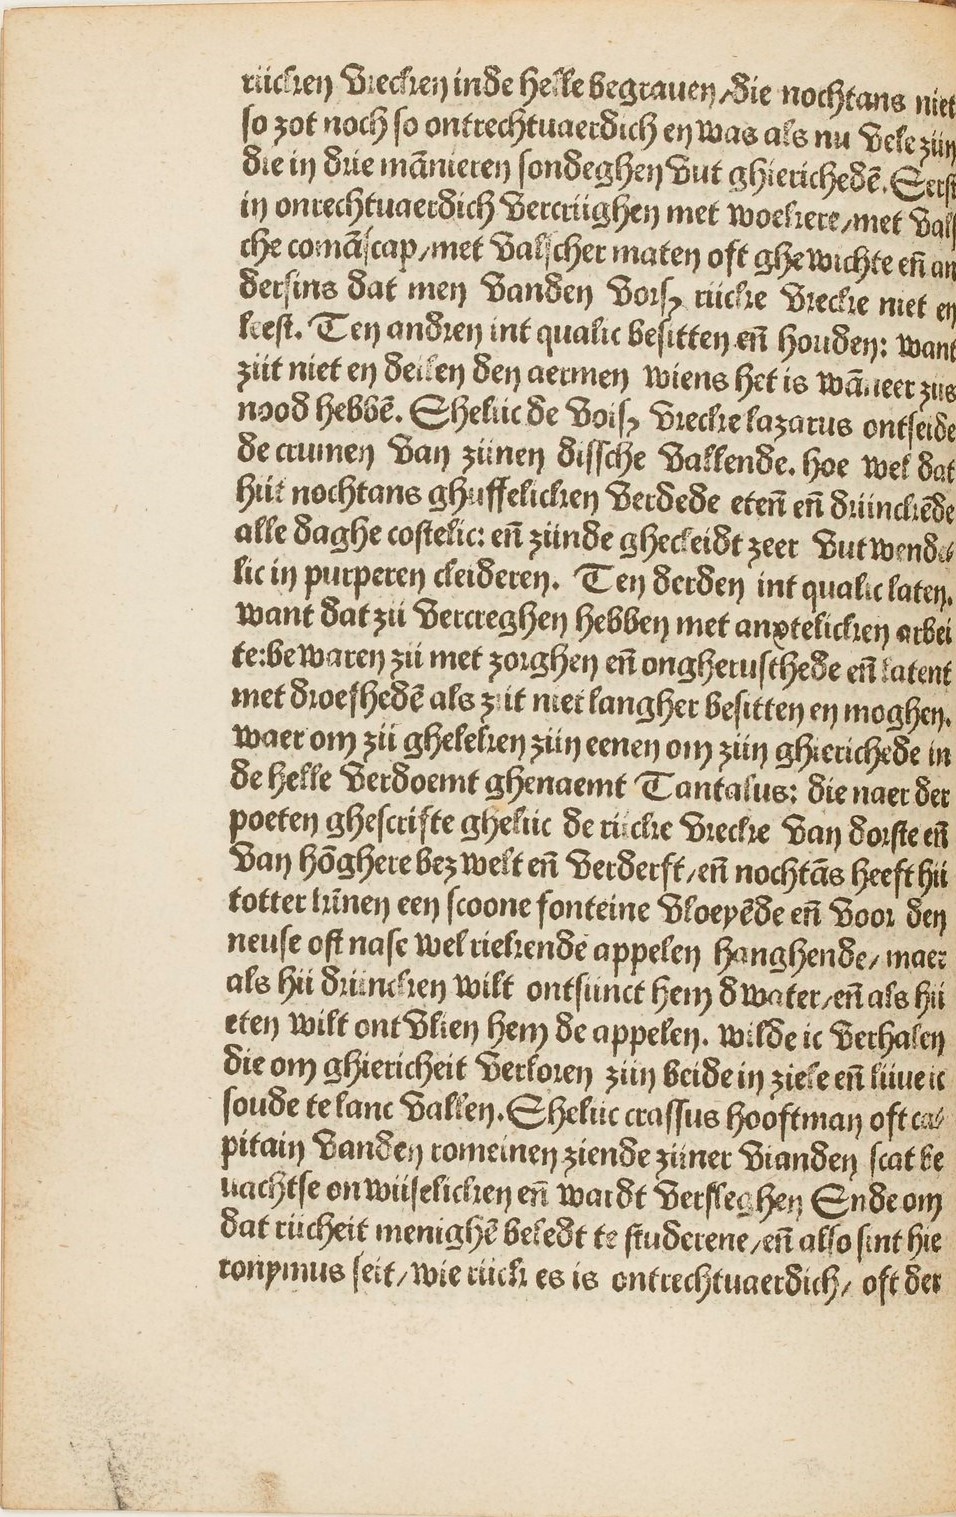 riicken vrecken inde helle begrauen/die nochtans niet
so zot noch so ontrechtuaerdich en was als nu vele ziin
die in drie mānieren sondeghen vut ghierichedē. Eerst
in onrechtuaerdich vercriighen met woekere/met vals
che comāscap/met valscher maten oft ghewichte en̄ an
dersins dat men vanden vorsꝫ riicke vrecke niet en
leest. Ten andren int qualic besitten en̄ houden: want
ziit niet en deilen den aermen wiens het is wāneer ziis
nood hebbē. Gheliic de voisꝫ vrecke lazarus ontseide
de crumen van ziinen dissche vallende. hoe wel dat
hiit nochtans ghuffelicken verdede eten̄ en̄ driinckēde
alle daghe costelic: en̄ ziinde ghecleidt zeer vutwende
lic in purperen cleideren. Ten derden int qualic laten.
want dat zii vercreghen hebben met anxtelicken arbei
te:bewaren zii met zorghen en̄ ongherusthede en̄ latent
met droefhedē als ziit niet langher besitten en moghen.
waer om zii gheleken ziin eenen om ziin ghierichede in
de helle verdoemt ghenaemt Tantalus: die naer der
poeten ghescrifte gheliic de riicke vrecke van dorste en̄
van hōghere bezwelt en̄ verderft/en̄ nochtās heeft hii
totter kīnen een scoone fonteine vloeyēde en̄ voor den
neuse oft nase wel riekende appelen hanghende/ maer
als hii driincken wilt ontsiinct hem dwater/en̄ als hii
eten wilt ontvlien hem de appelen. wilde ic verhalen
die om ghiericheit verloren ziin beide in ziele en̄ liiue ic
soude te lanc vallen. Gheliic crassus hooftman oft ca/
pitain vanden romeinen ziende ziiner vianden scat be
uachtse onwiiselicken en̄ wardt versleghen Ende om
dat riicheit menighē beledt te studerene/en̄ also sint hie
ronymus seit/wie riick es is ontrechtuaerdich/ oft der